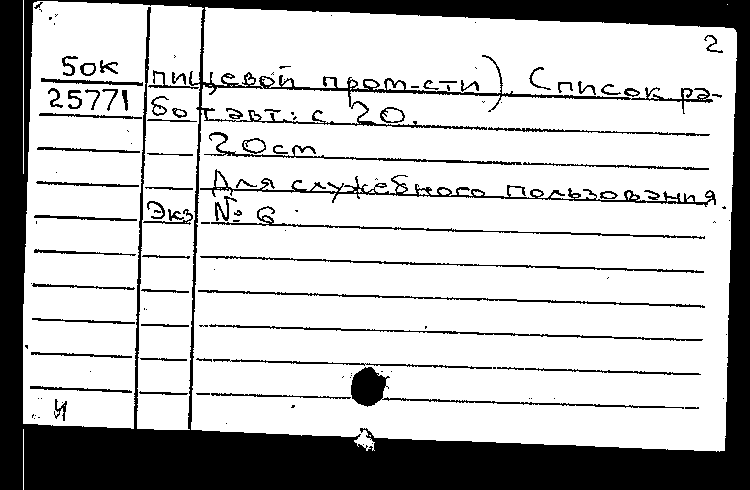 2
50к пищевой пром-сти). Список ра-
25771 бот авт.: с. 20.
20 см.
Для служебного пользования.
Экз № 6
И